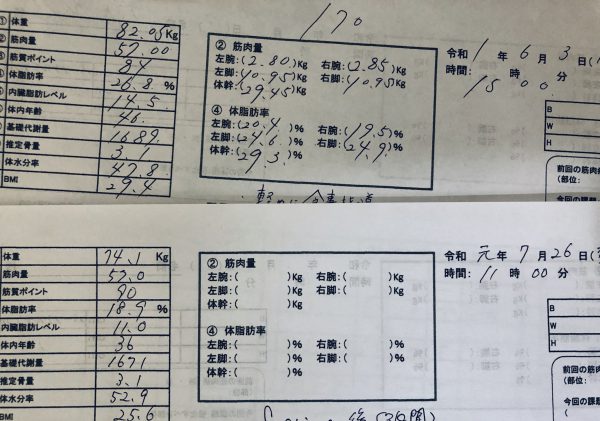 170
① 体重 82.05 Kg
② 筋肉量 57.00
③ 筋質ポイント 84
④ 体脂肪率 26.8. %
⑤ 内臓脂肪レベル 14.5
体内年齢 46.
基礎代謝量 1689.
推定骨量 3.1
体水分率 47.8
BMI 29.4
② 筋肉量
左腕:(2.80)Kg 右腕:(2.85)Kg
左脚:(10.95)Kg 右脚:(10.95)Kg
体幹:(29.45)Kg
④ 体脂肪率
左腕:(20.4)% 右腕:(19.5)%
左脚:(24.6)% 右脚:(24.9)%
体幹:(29.3)%
令和 1 年 6 月 3 日
時間: 15 時 00 分
B
W
H
前回の筋肉
(部位:
体重 74.1 Kg
筋肉量 57.0
筋質ポイント 90
体脂肪率 18.9 %
内臓脂肪レベル 11.0
体内年齢 36
基礎代謝量 1671
推定骨量 3.1
体水分率 52.9
BMI 25.6
② 筋肉量
左腕:( )Kg 右腕:( )Kg
左脚:( )Kg 右脚:( )Kg
体幹:( )Kg
④ 体脂肪率
左腕:( )% 右腕:( )%
左脚:( )% 右脚:( )%
体幹:( )%
令和 元 年 7 月 26 日
時間: 11 時 00 分
B
W
H
前回の筋肉
(部位:
今回の課題